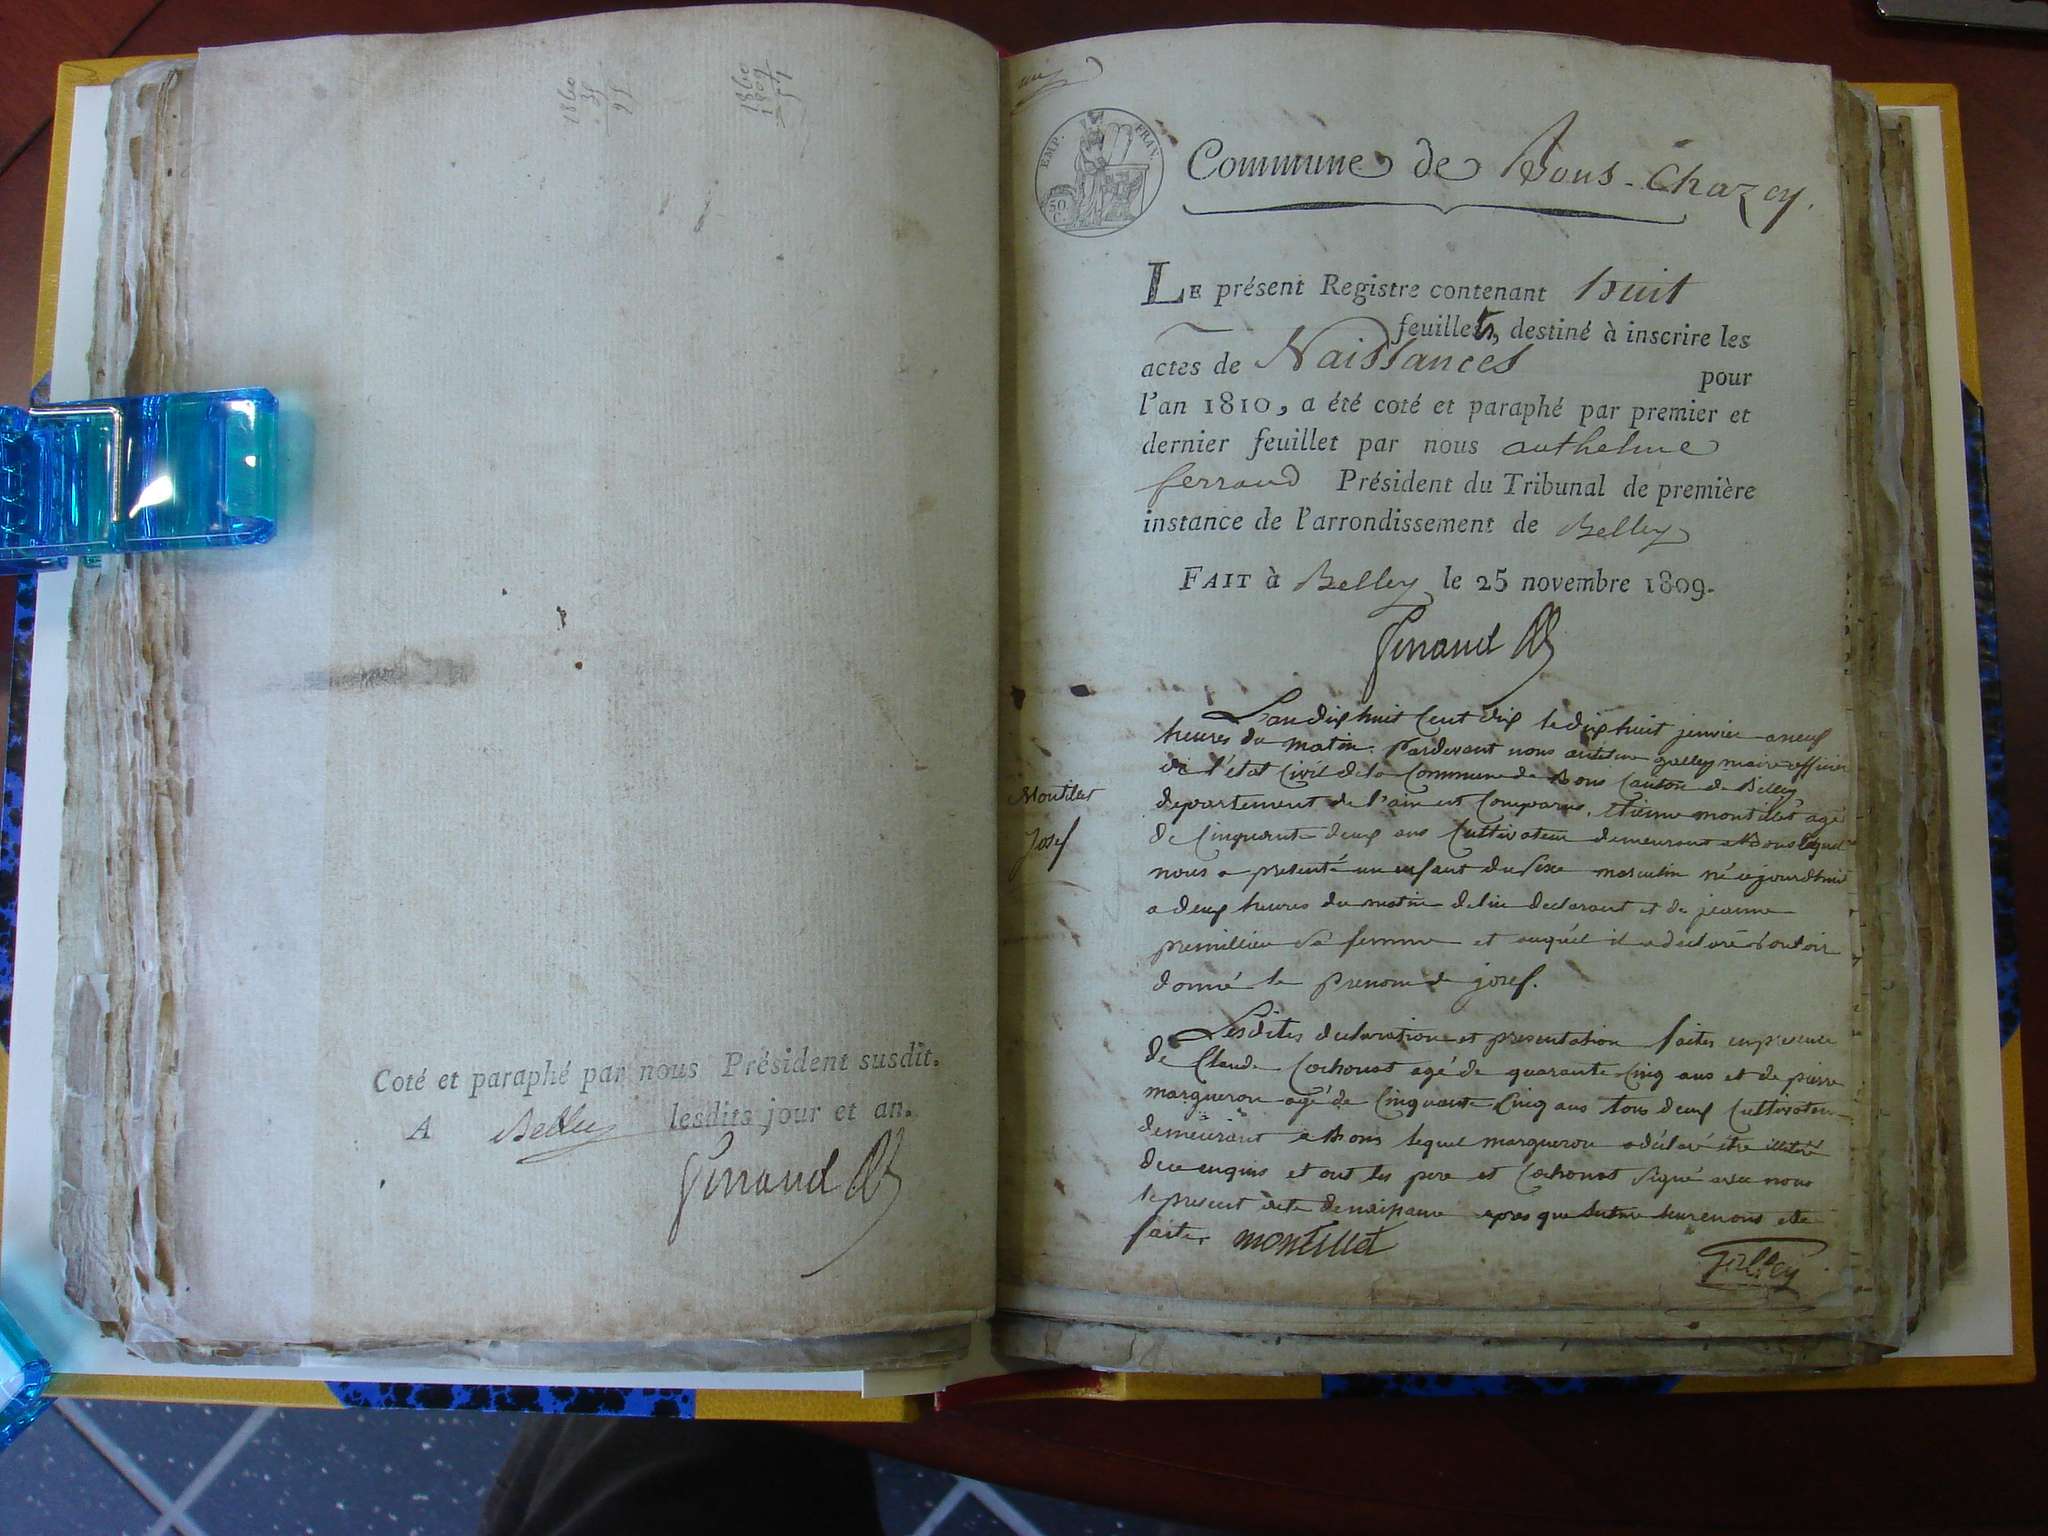 1860
35
25
1860
1809
51
Coté et paraphé par nous Président susdit.
A Belley lesdits jour et an.
Ferrand
EMP. FRAN.
50 C.
Commune de Bons-Chazey.
LE présent Registre contenant huit
feuillets, destiné à inscrire les
actes de Naissances pour
l'an 1810, a été coté et paraphé par premier et
dernier feuillet par nous anthelme
ferrand Président du Tribunal de première
instance de l'arrondissement de Belley
FAIT à Belley le 25 novembre 1809.
Ferrand
Montillet
Josef
L'an dix huit cent dix le dix huit janvier a neuf
heures du matin. Pardevant nous galley maire officier
de l'état Civil de la Commune de Bons Canton de Belley
departement de l'ain est Comparus, etienne montillet agé
de Cinquante deux ans Cultivateur demeurant a Bons lequel
nous a presenté un enfant du sexe masculin né cejourdhui
a deux heures du matin de lui declarant et de jeanne
premillieu sa femme et auquel il a declaré vouloir
donné le prenom de josef.
Lesdites declaration et presentation faites en presence
de Claude Cochonat agé de quarante Cinq ans et de pierre
margueron agé de Cinquante Cinq ans tous deux Cultivateur
demeurant a Bons lequel margueron a déclaré être illitéré
de ce enquis et ont les pere et Cochonat signé avec nous
le present acte de naissance apres que lecture leur en ont été
faite. montillet
Gallay